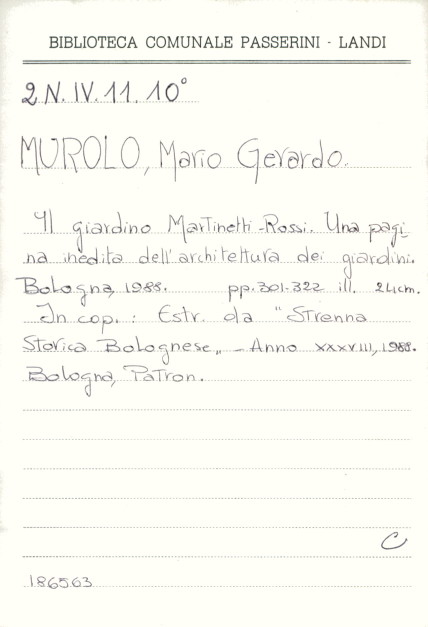 BIBLIOTECA COMUNALE PASSERINI - LANDI
2 N. IV. 11. 10°
MUROLO, Mario Gerardo.
Il giardino Martinetti-Rossi. Una pagi_
na inedita dell'architettura dei giardini.
Bologna, 1988. pp. 301-322 ill. 24cm.
In cop. : Estr. da "Strenna
Storica Bolognese„ - Anno XXXVIII, 1988.
Bologna, Patron.
C
186563